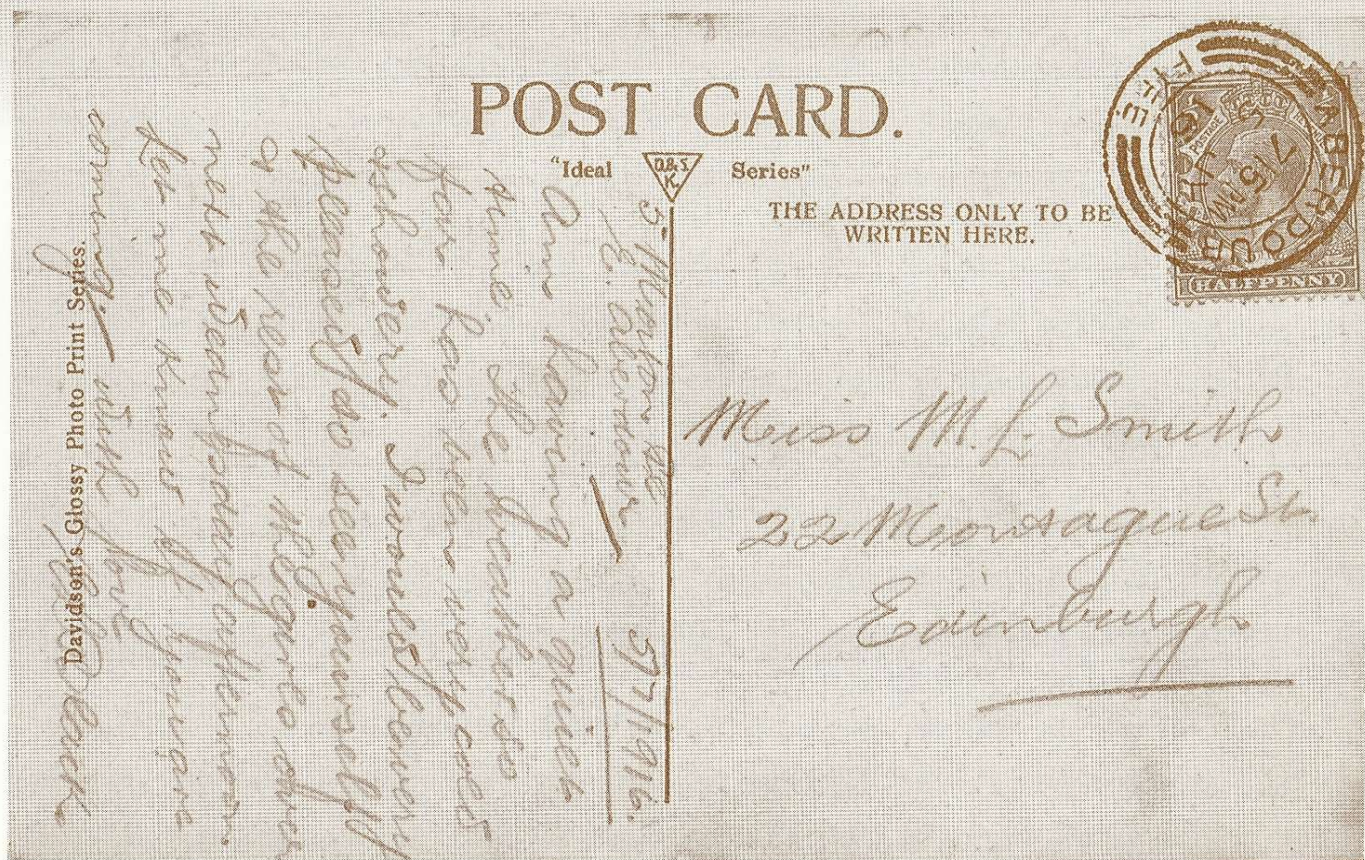 POST CARD.
"Ideal D&S K. Series"
THE ADDRESS ONLY TO BE
WRITTEN HERE.
ABERDOUR
FIFE
7 15 PM
JY
16
POSTAGE
HALFPENNY
Miss M. L. Smith
22 Montague St.
Edinburgh
5
E. Aberdour
5/7/1916.
Am having a quiet
time. The weather so
far has been very cold
& showery. I would be very
pleased to see yourself
& the rest of the girls over
next Wednesday afternoon
Let me know if you are
coming. With love
Black
Davidson's Glossy Photo Print Series.